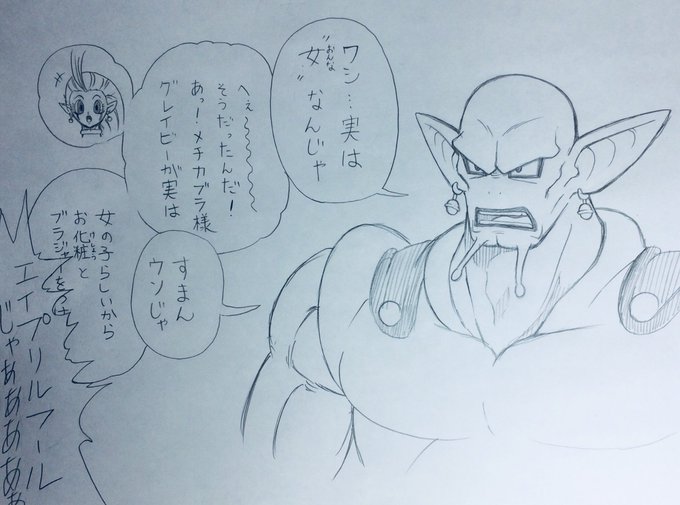 ワシ…実は
おんな
〝女〟なんじゃ
へぇ〜〜〜〜
そうだったんだ!
あっ!メチカブラ様
グレイビーが実は
すまん
ウソじゃ
女の子らしいから
お化粧と
ブラジャーを
エイプリルフール
じゃぁぁぁぁぁ